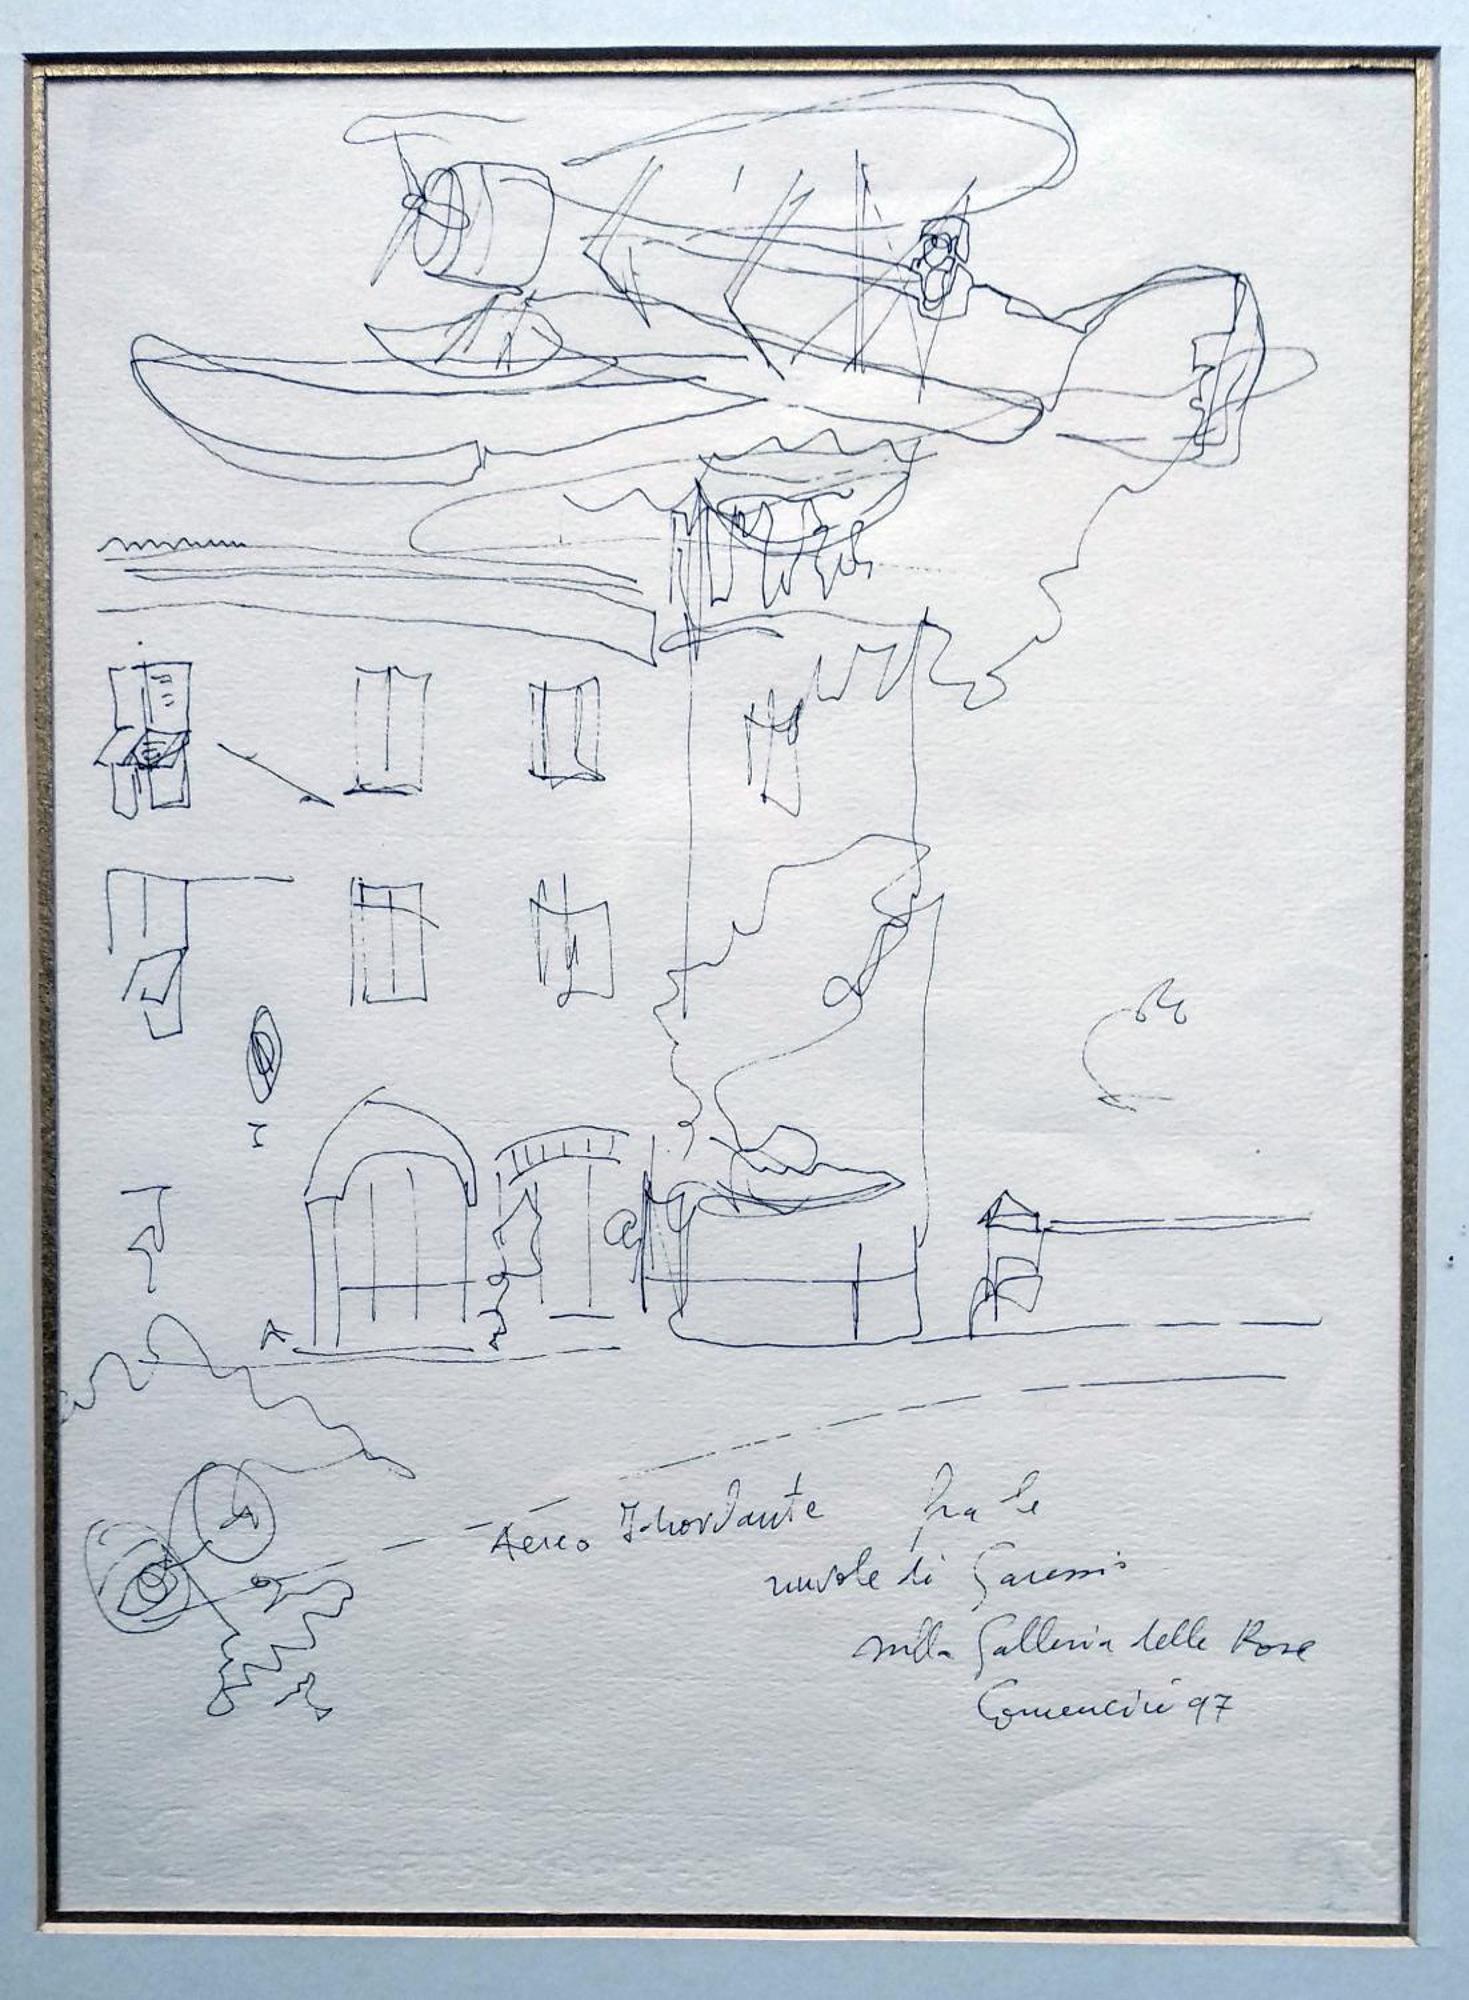 Aereo fra le
nuvole di Garessio
sulla Galleria delle Rose
Comencini 97